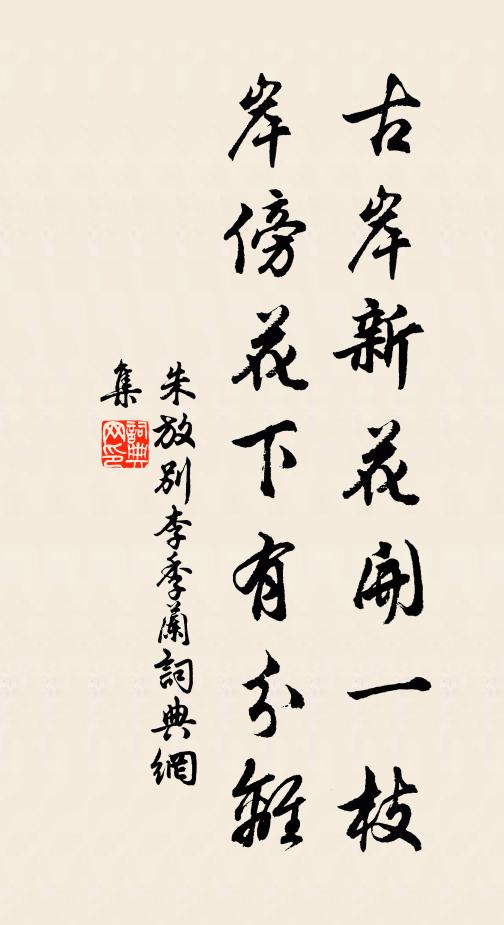 古岸新花開一枝
岸傍花下有分離
朱放別李季蘭詞典網
集
詞典网印